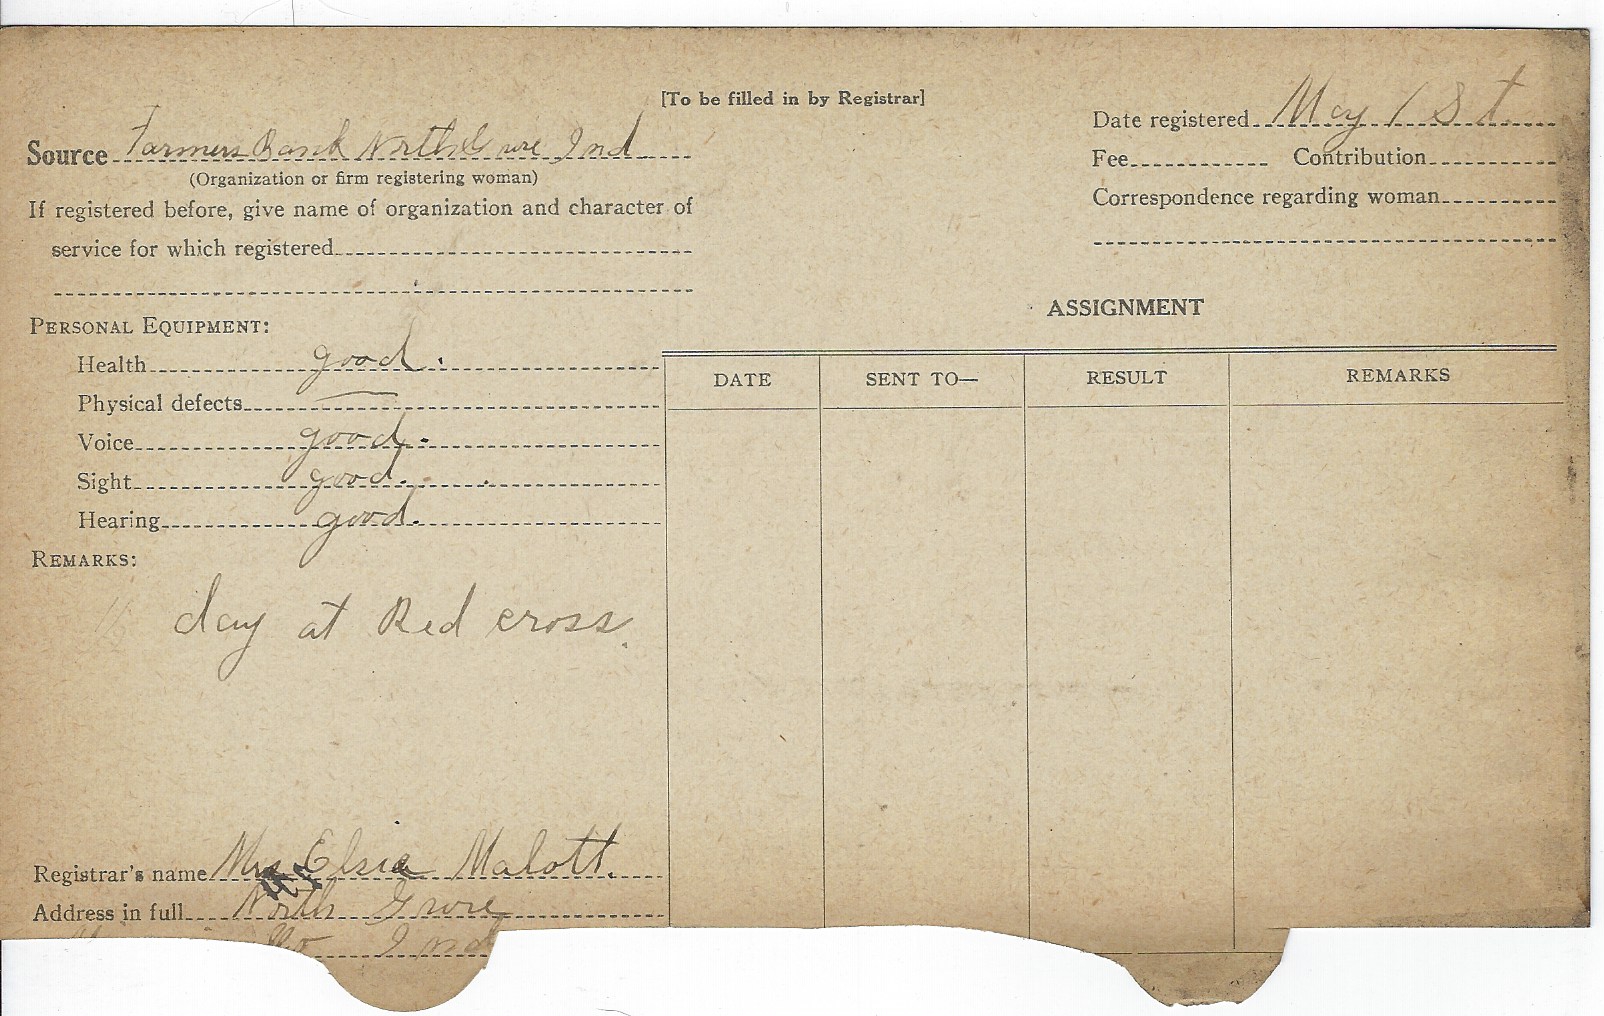 [To be filled in by Registrar]
Source Farmers Bank North Grove Ind
(Organization or firm registering woman)
If registered before, give name of organization and character of
service for which registered
Date registered May 1 St.
Fee Contribution
Correspondence regarding woman
PERSONAL EQUIPMENT:
Health good.
Physical defects —
Voice good.
Sight good.
Hearing good.
REMARKS:
day at Red cross.
Registrar's name Mrs Elsie Malott.
Address in full North Grove
Co Ind
ASSIGNMENT
DATE SENT TO— RESULT REMARKS